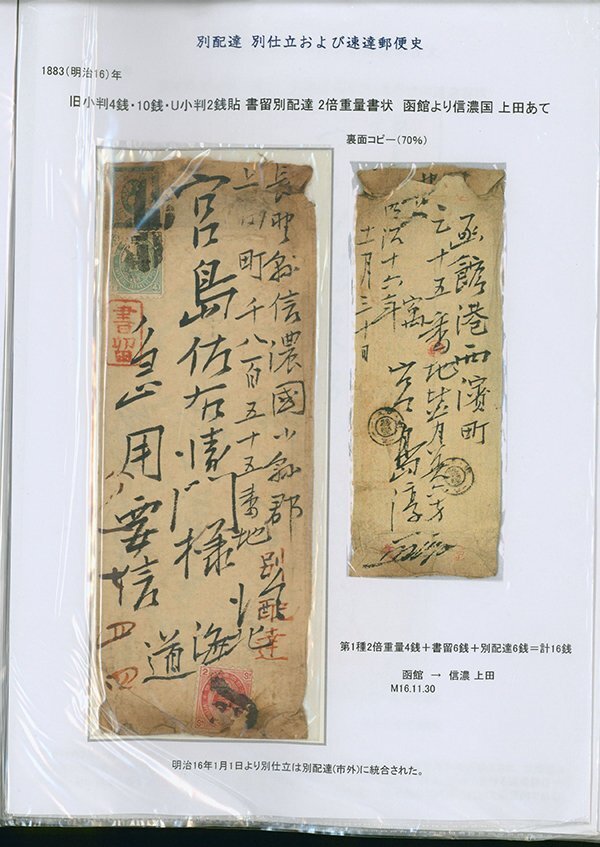 別配達 別仕立および速達郵便史
1883(明治16)年
旧小判4銭・10銭・U小判2銭貼 書留別配達 2倍重量書状 函館より信濃国 上田あて
裏面コピー(70%)
長野縣信濃國小縣郡
上田町千八百五十五番地
宮島佑右衛門様
書留
急用要信
別配達
北海道
函館港西濱町
三十五番地
寓
宮島淳
明治十六年
十一月三十日
第1種2倍重量4銭+書留6銭+別配達6銭=計16銭
函館 → 信濃 上田
M16.11.30
明治16年1月1日より別仕立は別配達(市外)に統合された。